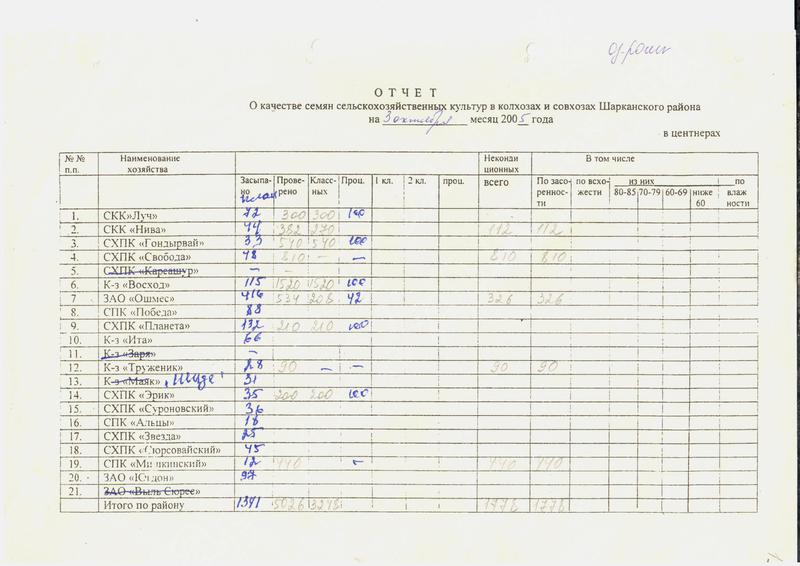 ОТЧЕТ
О качестве семян сельскохозяйственных культур в колхозах и совхозах Шарканского района
на 3 октября месяц 2005 года
в центнерах
№ № п.п. Наименование хозяйства Засыпано Проверено Классных Проц. 1 кл. 2 кл. проц. Некондиционных всего В том числе
По засоренности по всхожести из них 80-85 70-79 60-69 ниже 60 по влажности
план
1. СКК»Луч» 72 300 300 100
2. СКК «Нива» 44 382 270 112 112
3. СХПК «Гондырвай» 33 540 540 100
4. СХПК «Свобода» 48 810 – – 810 810
5. СХПК «Кареашур» – –
6. К-з «Восход» 115 1520 1520 100
7 ЗАО «Ошмес» 416 534 208 42 326 326
8. СПК «Победа» 88
9. СХПК «Планета» 132 210 210 100
10. К-з «Ита» 66
11. К-з «Заря» –
12. К-з «Труженик» 28 90 – – 90 90
13. К-з «Маяк» 31
14. СХПК «Эрик» 35 200 200 100
15. СХПК «Суроновский» 36
16. СПК «Альцы» 18
17. СХПК «Звезда» 25
18. СХПК «Сюрсовайский» 45
19. СПК «Мишкинский» 12 440 – 440 440
20. ЗАО 97
21. ЗАО «Выль Сюрес»
Итого по району 1341 5026 3248 1778 1778